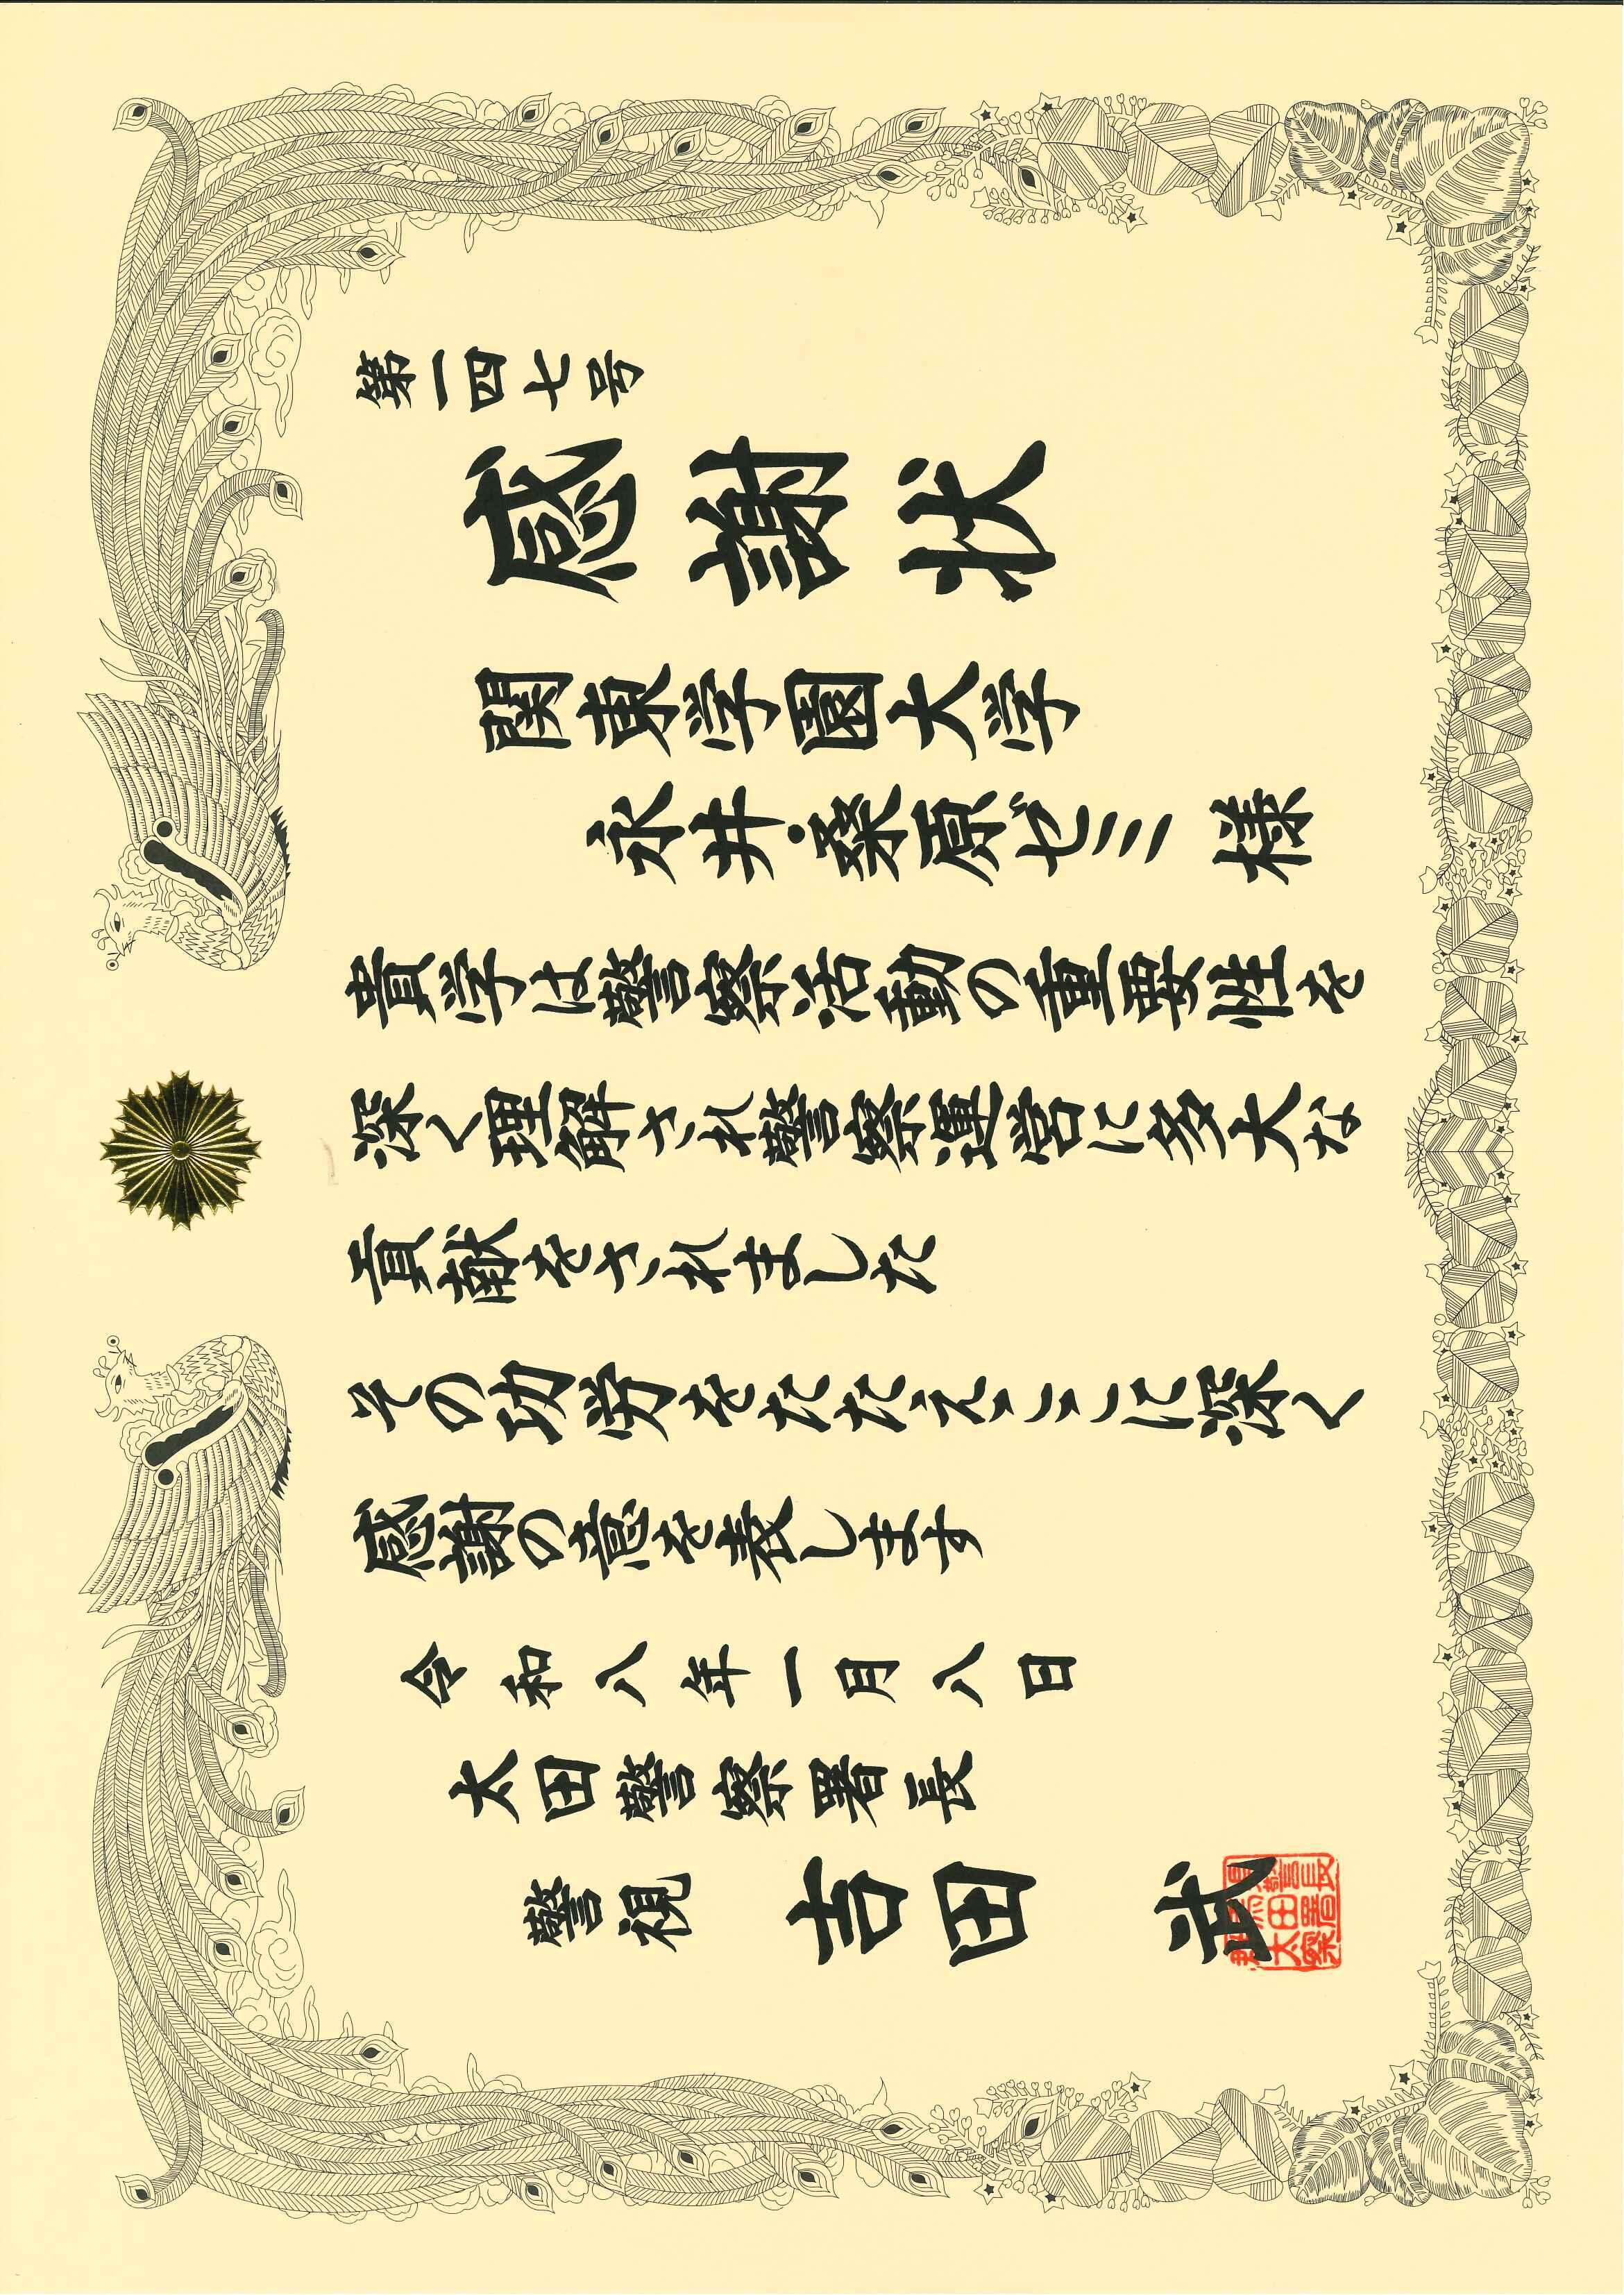 第一四七号
感謝状
関東学園大学
永井・桑原ゼミ 様
貴学は警察活動の重要性を
深く理解され警察運営に多大な
貢献をされました
その功労をたたえここに深く
感謝の意を表します
令和八年一月八日
太田警察署長
警視 吉田 武